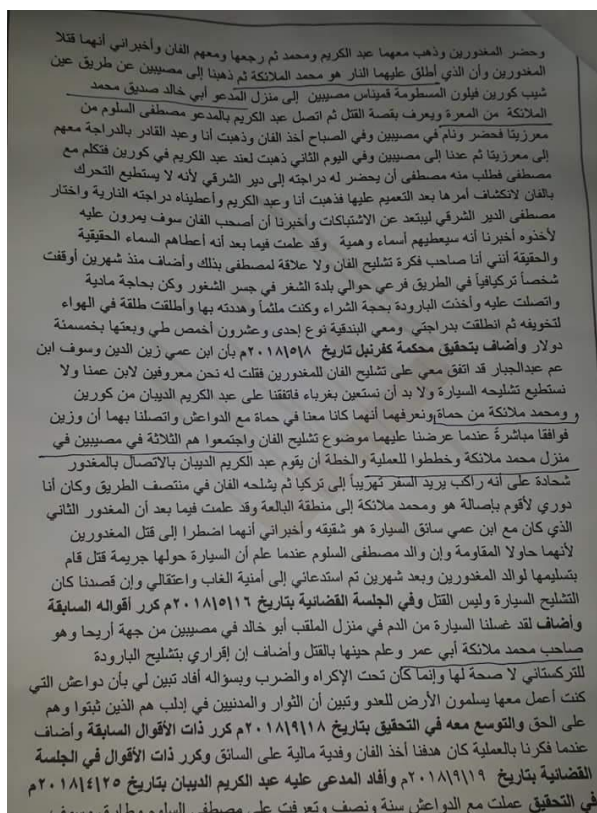 وحضر المغدورين وذهب معهما عبد الكريم ومحمد ثم رجعها ومعهم الفان وأخبراني أنهما قتلا
المغدورين وأن الذي أطلق عليهما النار هو محمد الملانكة ثم ذهبنا إلى مصيبين عن طريق عين
شيب كورين فيلون المسطومة قميناس مصيبين إلى منزل المدعو أبي خالد صديق محمد
الملانكة من المعرة ويعرف بقصة القتل ثم اتصل عبد الكريم بالمدعو مصطفى السلوم من
معرزيتا فحضر ونام في مصيبين وفي الصباح أخذ الفان وذهبت أنا وعبد القادر بالدراجة معهم
إلى معرزيتا ثم عدنا إلى مصيبين وفي اليوم الثاني ذهبت لعند عبد الكريم في كورين فتكلم مع
مصطفى فطلب منه مصطفى أن يحضر له دراجته إلى دير الشرقي لأنه لا يستطيع التحرك
بالفان لانكشاف أمرها بعد التعميم عليها فذهبت أنا وعبد الكريم وأعطيناه دراجته النارية واختار
مصطفى الدير الشرقي ليبتعد عن الاشتباكات وأخبرنا أن أصحب الفان سوف يمرون عليه
لأخذوه أخبرنا أنه سيعطيهم أسماء وهمية وقد علمت فيما بعد أنه أعطاهم السماء الحقيقية
والحقيقة أنني أنا صاحب فكرة تشليح الفان ولا علاقة لمصطفى بذلك وأضاف منذ شهرين أوقفت
شخصاً تركيافياً في الطريق فرعي حوالي بلدة الشغر في جسر الشغور وكن بحاجة مادية
واتصلت عليه وأخذت البارودة بحجة الشراء وكنت ملثماً وهددته بها وأطلقت طلقة في الهواء
لتخويفه ثم انطلقت بدراجتي ومعي البندقية نوع إحدى وعشرون أخمص طي وبعتها بخمسمئة
دولار وأضاف بتحقيق محكمة كفرنبل تاريخ ٢٠١٨/٥/٨م بأن ابن عمي زين الدين وسوف ابن
عم عبدالجبار قد اتفق معي على تشليح الفان للمغدورين فقلت له نحن معروفين لابن عمنا ولا
نستطيع تشليحه السيارة ولا بد أن نستعين بغرباء فاتفقنا على عبد الكريم الديبان من كورين
ومحمد ملانكة من حماة ونعرفهما أنهما كانا معنا في حماة مع الدواعش واتصلنا بهما أن وزين
فوافقا مباشرةً عندما عرضنا عليهما موضوع تشليح الفان واجتمعوا هم الثلاثة في مصيبين في
منزل محمد ملانكة وخططوا للعملية والخطة أن يقوم عبد الكريم الديبان بالاتصال بالمغدور
شحادة على أنه راكب يريد السفر تهريباً إلى تركيا ثم يشلحه الفان في منتصف الطريق وكان أنا
دوري لأقوم بإصالة هو ومحمد ملانكة إلى منطقة البالعة وقد علمت فيما بعد أن المغدور الثاني
الذي كان مع ابن عمي سائق السيارة هو شقيقه وأخبراني أنهما اضطرا إلى قتل المغدورين
لأنهما حاولا المقاومة وإن والد مصطفى السلوم عندما علم أن السيارة حولها جريمة قتل قام
بتسليمها لوالد المغدورين وبعد شهرين تم استدعائي إلى أمنية الغاب واعتقالي وإن قصدنا كان
التشليح السيارة وليس القتل وفي الجلسة القضائية بتاريخ ٢٠١٨/٥/١٦م كرر أقواله السابقة
وأضاف لقد غسلنا السيارة من الدم في منزل الملقب أبو خالد في مصيبين من جهة أريحا وهو
صاحب محمد ملانكة أبي عمر وعلم حينها بالقتل وأضاف إن إقراري بتشليح البارودة
للتركستاني لا صحة لها وإنما كان تحت الإكراه والضرب وبسؤاله أفاد تبين لي بأن دواعش التي
كنت أعمل معها يسلمون الأرض للعدو وتبين أن الثوار والمدنيين في إدلب هم الذين ثبتوا وهم
على الحق والتوسع معه في التحقيق بتاريخ ٢٠١٨/٩/١٨م كرر ذات الأقوال السابقة وأضاف
عندما فكرنا بالعملية كان هدفنا أخذ الفان وفدية مالية على السائق وكرر ذات الأقوال في الجلسة
القضائية بتاريخ ٢٠١٨/٩/١٩م وأفاد المدعى عليه عبد الكريم الديبان بتاريخ ٢٠١٨/٤/٢٥م
في التحقيق عملت مع الدواعش سنة ونصف وتعرفت على مصطفى السلوم